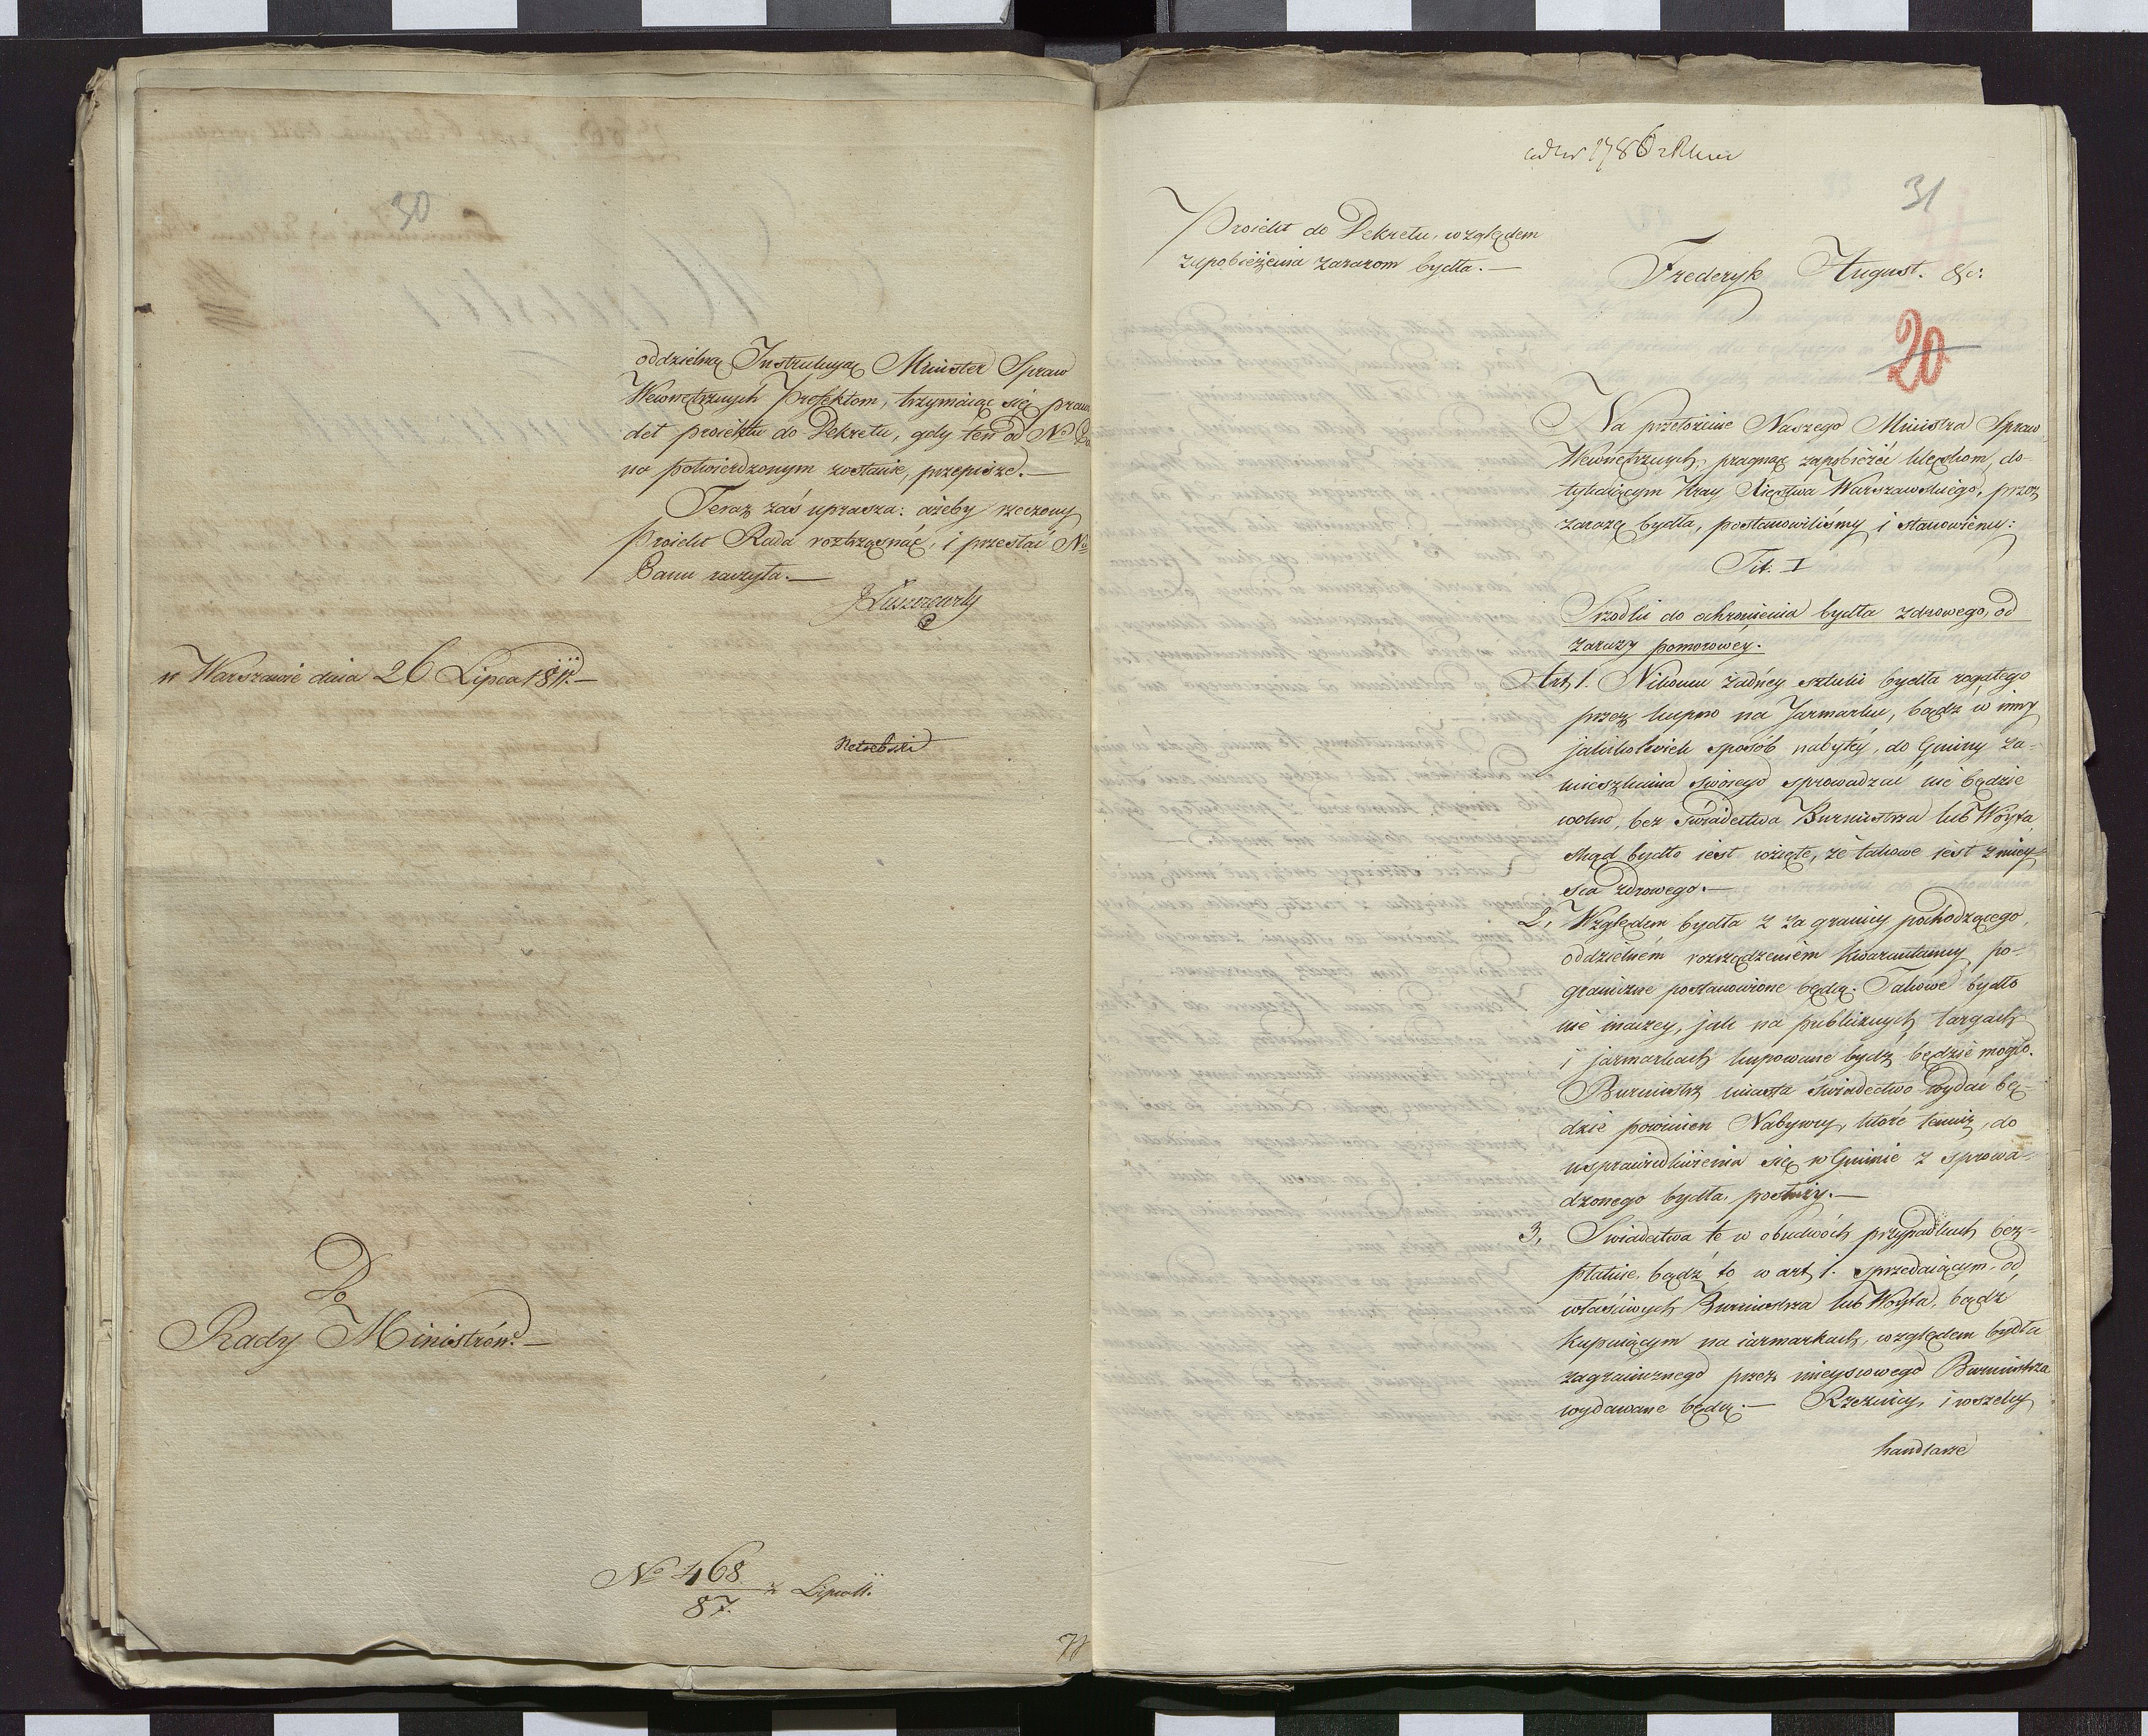 30
oddzielną Instrukcyą Minister Spraw
Wewnętrznych Prefektom, trzymaiąc się praw
deł proiektu do Dekretu, gdy ten od N° Pa
na potwierdzonym zostanie, przepisze.—
Teraz zaś uprasza: ażeby rzeczony
Proiekt Rada roztrząsnąć, i przesłać N°
Panu raczyła.—
J Łuszczewski
w Warszawie dnia 26 Lipca 1811.—
Do
Rady Ministrów.—
N° 468
87. z Lipca 11.
ad N° 1786
31
Proiekt do Dekretu, względem
zapobieżenia zarazom bydła.—
Frederyk August. &c:
20
Na przełożenie Naszego Ministra Spraw
Wewnętrznych, pragnąc zapobieżeć klęskom, do-
tykaiącym Kray Xięstwa Warszawskiego, przez
zarazę bydła, postanowiliśmy i stanowiemy:
Tit. I
Srzodki do ochronienia bydła zdrowego, od
zarazy pomorowey.
Art, 1. Nikomu żadney sztuki bydła rogatego
przez kupno na Jarmarku, bądź w inny
jakikolwiek sposób nabytey, do Gminy za-
mieszkania swoiego sprowadzać nie będzie
wolno, bez świadectwa Burmistrza lub Woyta,
skąd bydło iest wzięte, że takowe iest z miey-
sca zdrowego.—
2, Względem bydła z za granicy pochodzącego,
oddzielném rozrządzeniem Kwarantanny po-
graniczne postanowione będą. Takowe bydło
nie inaczey, jak na publicznych targach
i jarmarkach kupowane bydź będzie mogło.
Burmistrz miasta świadectwo wydać bę-
dzie powinien Nabywcy, które temuż, do
usprawiedliwienia się w Gminie z sprowa-
dzonego bydła, posłuży.—
3, Swiadectwa te w obudwóch przypadkach bez-
płatnie, bądź to w art, 1. sprzedaiącym, od
właściwych Burmistrza lub Woyta, bądź
kupuiącym na iarmarkach, względem bydła
zagranicznego przez mieyscowego Burmistrza
wydawane będą.— Rzeźnicy, i wszelcy
handlarze